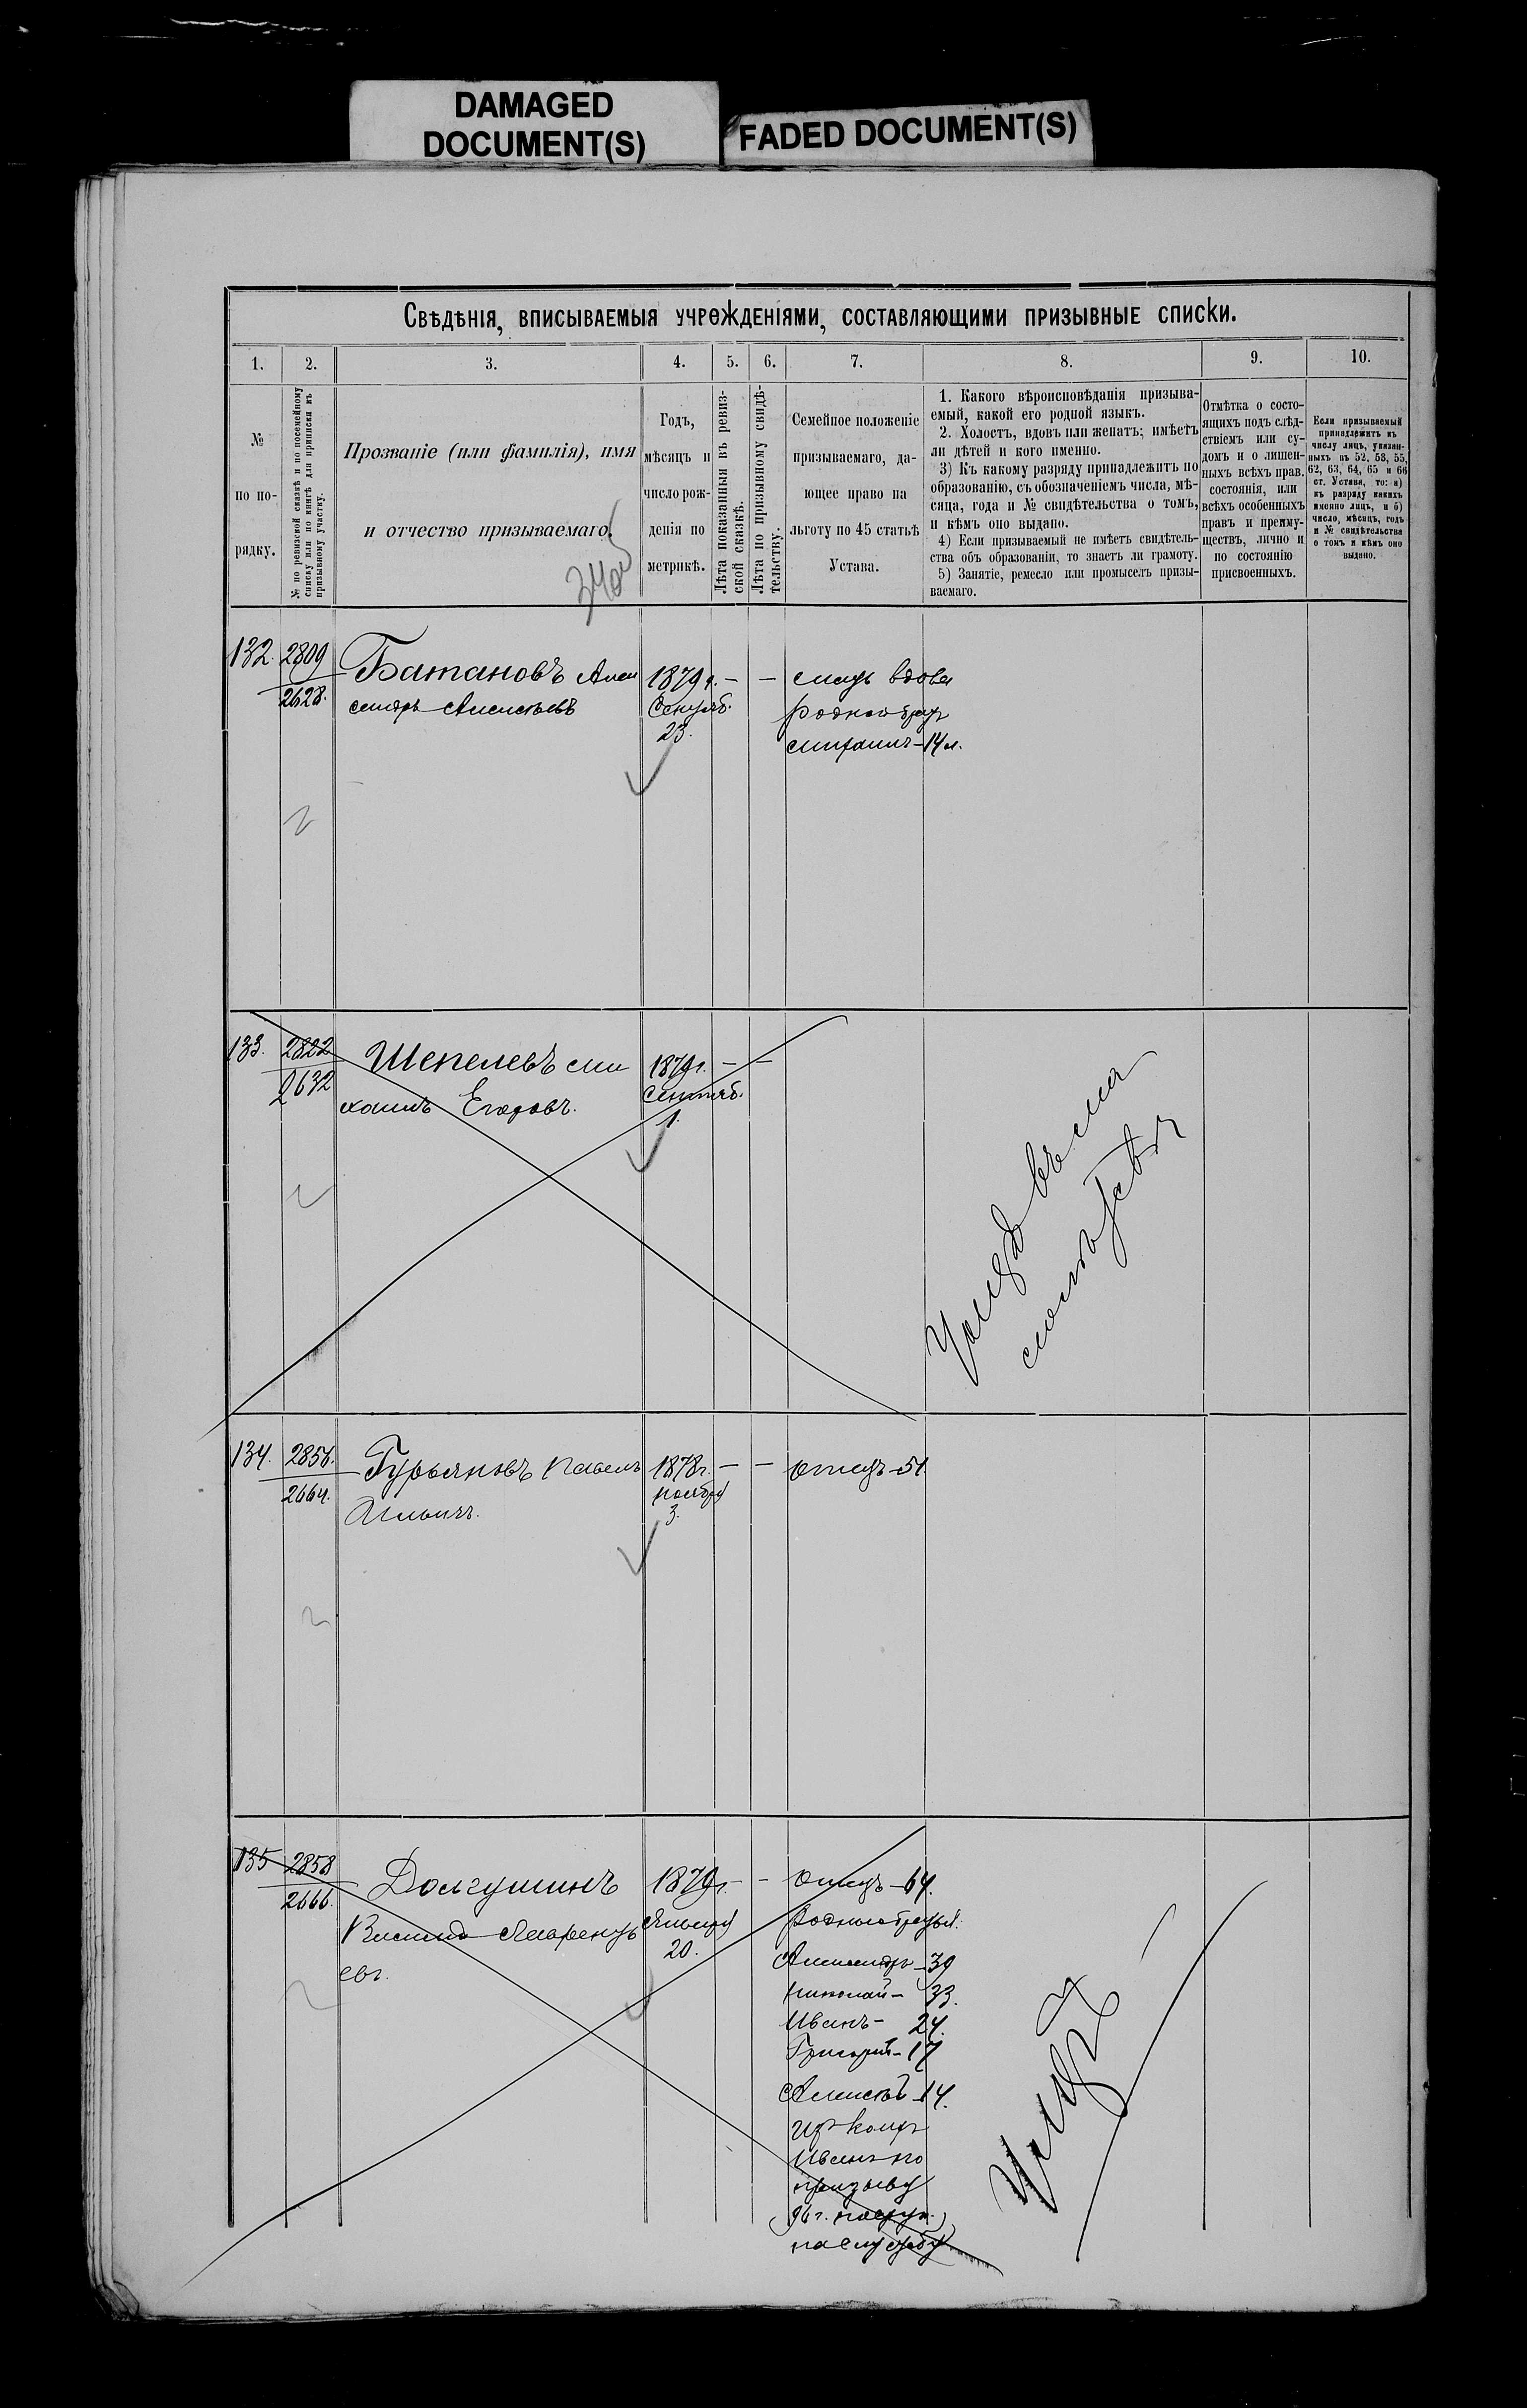 DAMAGED
DOCUMENT(S)
FADED DOCUMENT(S)
Свѣдѣнія, вписываемыя учрежденіями, составляющими призывные списки.
1. 2. 3. 4. 5. 6. 7. 8. 9. 10.
№
по по-
рядку.
№ по ревизской сказкѣ и по посемейному
списку или по книгѣ для приписки къ
призывному участку.
Прозваніе (или фамилія), имя
и отчество призываемаго.
Годъ,
мѣсяцъ и
число рож-
денія по
метрикѣ.
Лѣта показанныя въ ревиз-
ской сказкѣ.
Лѣта по призывному свидѣ-
тельству.
Семейное положеніе
призываемаго, да-
ющее право на
льготу по 45 статьѣ
Устава.
1. Какого вѣроисповѣданія призыва-
емый, какой его родной языкъ.
2. Холостъ, вдовъ или женатъ; имѣетъ
ли дѣтей и кого именно.
3) Къ какому разряду принадлежитъ по
образованію, съ обозначеніемъ числа, мѣ-
сяца, года и № свидѣтельства о томъ,
и кѣмъ оно выдано.
4) Если призываемый не имѣетъ свидѣтель-
ства объ образованіи, то знаетъ ли грамоту.
5) Занятіе, ремесло или промыселъ призы-
ваемаго.
Отмѣтка о состо-
ящихъ подъ слѣд-
ствіемъ или су-
домъ и о лишен-
ныхъ всѣхъ прав.
состоянія, или
всѣхъ особенныхъ
правъ и преиму-
ществъ, лично и
по состоянію
присвоенныхъ.
Если призываемый
принадлежитъ къ
числу лицъ, указан-
ныхъ въ 52, 53, 55,
62, 63, 64, 65 и 66
ст. Устава, то: а)
къ разряду какихъ
именно лицъ, и б)
число, мѣсяцъ, годъ
и № свидѣтельства
о томъ и кѣмъ оно
выдано.
132. 2809 Батановъ Алек 1879 г. – – мать вдова
2628. сандръ Алексѣевъ Сентяб. родной братъ
23. Михаилъ – 14 л.
133. 2822 Шепелевъ Ми 1879 г. – –
2632 хаилъ Егоровъ. Сентяб.
1.
Умеръ въ мла
134. 2856. Гурьяновъ Павелъ 1878 г. – – отецъ – 51
2664. Ильичъ. ноября
3.
135 2858 Долгушинъ 1879 г. – – отецъ – 64.
2666. Василій Лаврентъ Января родные братья:
евъ. 20. Александръ – 39
Николай – 33.
Иванъ – 24.
Григорій – 17
Алексѣй – 14.
Изъ коихъ
Иванъ по
призыву
96 г. поступ.
на службу
Умеръ